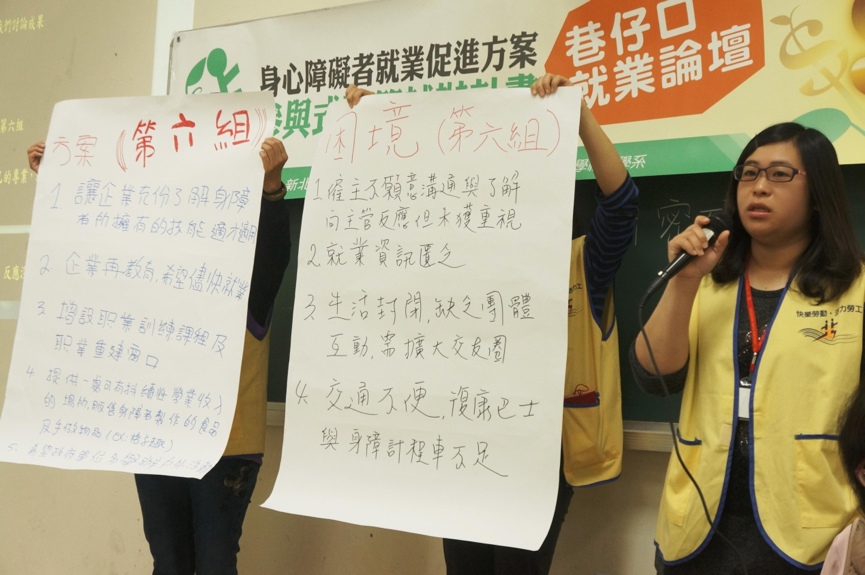 們討論成果
第六組
身心障礙者就業促進方案
巷仔口
就業論壇
新北
學系
方案《第六組》
1. 讓企業充份了解身障
者的擁有的技能適才適用
2. 企業再教育,希望儘快就業
3. 增設職業訓練課程及
職業重建窗口
4. 提供一處可有持續性營業收入
的場所販售身障者製作的食品
及手做物品
5.
困境(第六組)
1. 雇主不願意溝通與了解
向主管反應但未獲重視
2. 就業資訊匱乏
3. 生活封閉,缺乏團體
互動,需擴大交友圈
4. 交通不便,復康巴士
與身障計程車不足
快樂勞動